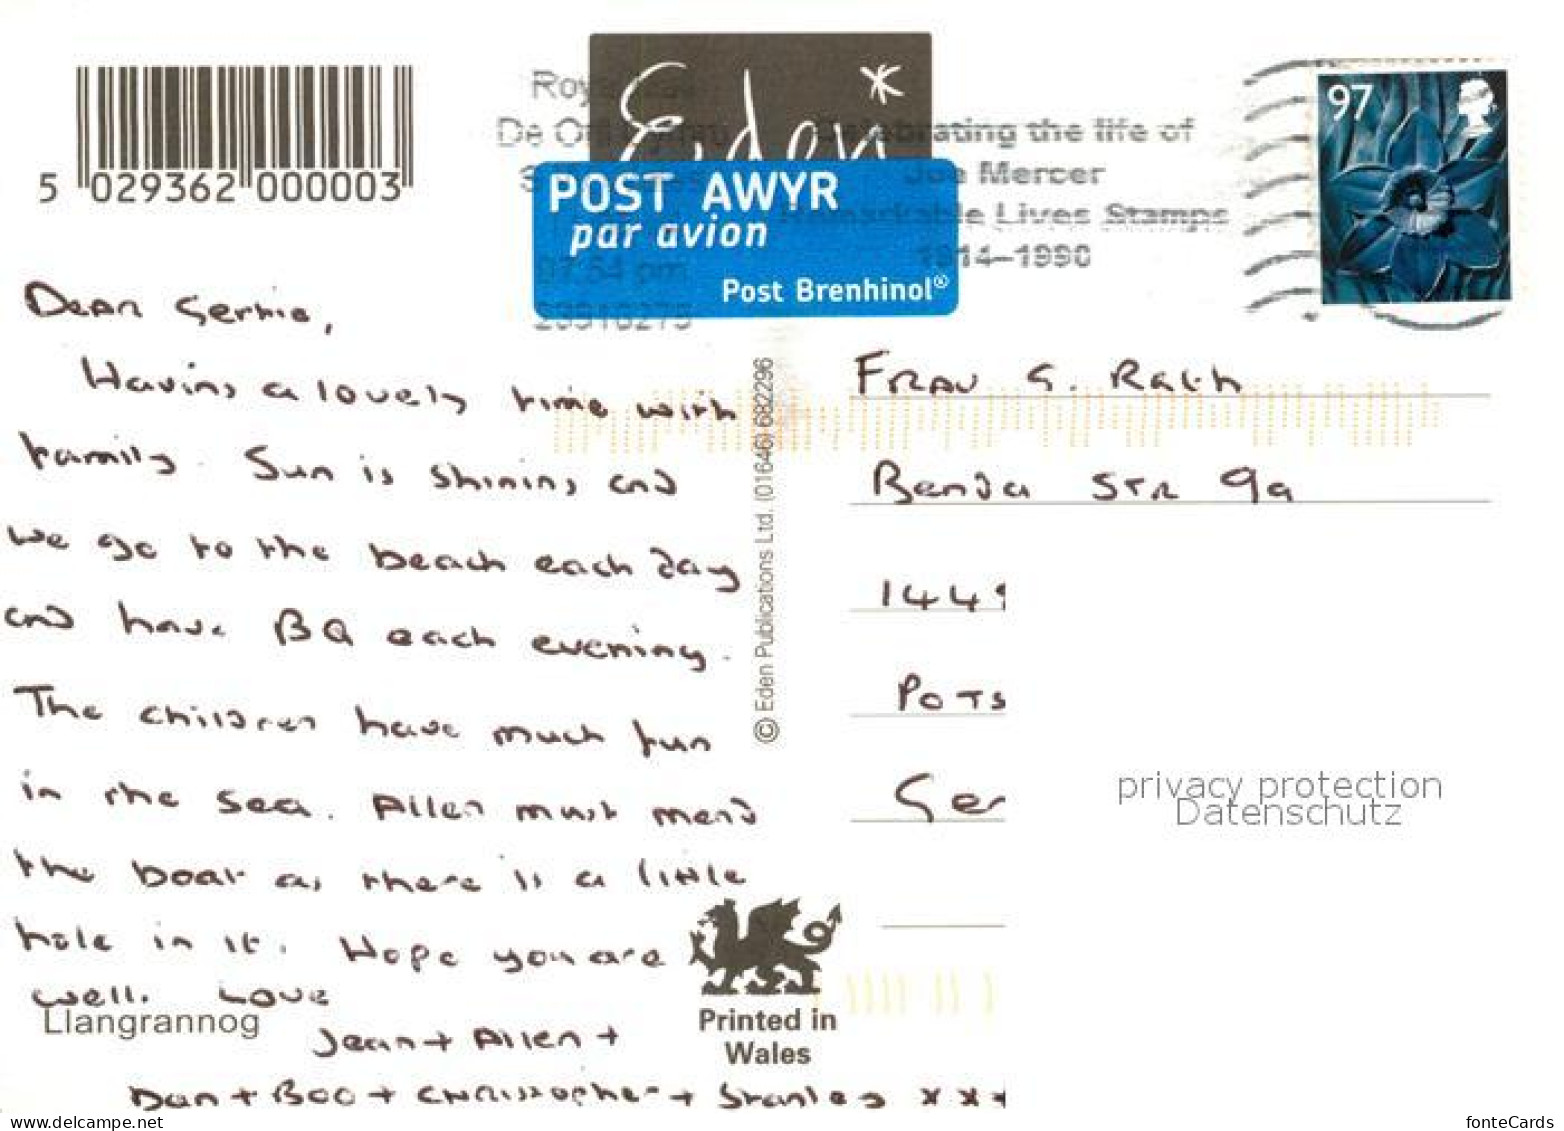 5 029362 000003
Eden
97
Celebrating the life of
Joe Mercer
Remarkable Lives Stamps
1914–1990
07:54 pm
23916275
POST AWYR
par avion
Post Brenhinol®
Dear Gertie,
Having a lovely time with
family. Sun is shining and
we go to the beach each day
and have BQ each evening.
The children have much fun
in the sea. Allen must mend
the boat as there is a little
hole in it. Hope you are
well. Love
Jean + Allen +
Dan + Boo + Christopher + Stanley x x x
Llangrannog
© Eden Publications Ltd. (01646) 682296
Printed in
Wales
FRAU G. Rath
Benda STR 9a
1449
POTS
Ger
privacy protection
Datenschutz
www.delcampe.net
fonteCards